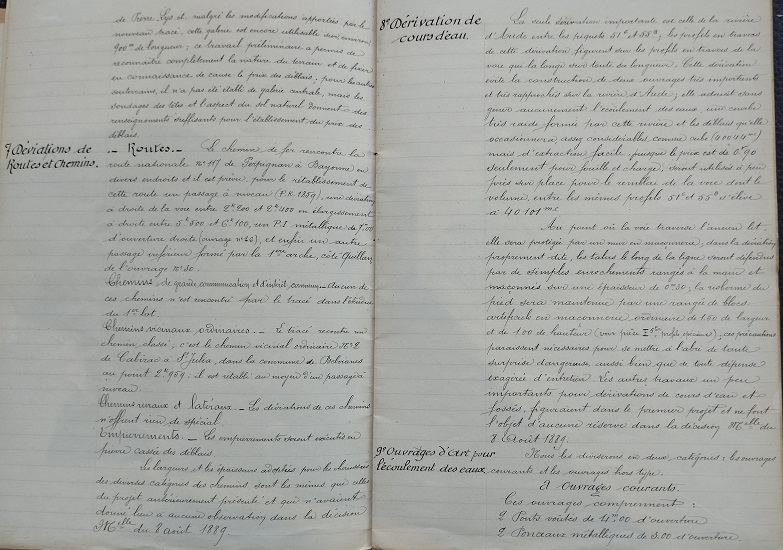 de Pierre-Lys et malgré les modifications apportées par le
nouveau tracé, cette galerie est encore utilisable sur environ
900m de longueur; ce travail préliminaire a permis de
reconnaître complètement la nature du terrain et de fixer
en connaissance de cause le prix des déblais; pour les autres
souterrains, il n'a pas été établi de galerie centrale, mais les
sondages des têtes et l'aspect du sol naturel donnent des
renseignements suffisants pour l'établissement du prix des
déblais.
7° Déviations de
Routes et Chemins.
_ Routes _ Le chemin de fer rencontre la
route nationale n° 117 de Perpignan à Bayonne en
divers endroits et il est prévu, pour le rétablissement de
cette route un passage à niveau (P.K. 1859), une déviation
à droite de la voie entre 2k200 et 2k400 en élargissement
à droite entre 5k500 et 6k100, un P.I. métallique de 7.00
d'ouverture droite (ouvrage n° 26), et enfin un autre
passage inférieur formé par la 1ère arche, côté Quillan,
de l'ouvrage n° 30.
Chemins de grande communication et d'intérêt commun _ Aucun de
ces chemins n'est rencontré par le tracé dans l'étendue
du 1er lot.
Chemins vicinaux ordinaires. _ Le tracé rencontre un
chemin classé; c'est le chemin vicinal ordinaire N° 2
de Cabirac à St Julia, dans la commune de Belvianes
au point 2k959: il est rétabli au moyen d'un passage à
niveau.
Chemins ruraux et latéraux _ Les déviations de ces chemins
n'offrent rien de spécial.
Empierrements. _ Les empierrements seront exécutés en
pierre cassée des déblais.
Les largeurs et les épaisseurs adoptées pour les chaussées
des diverses catégories des chemins sont les mêmes que celles
du projet antérieurement présenté et qui n'avaient
donné lieu à aucune observation dans la décision
Mlle du 8 août 1889.
8° Dérivation de
cours d'eau.
La seule dérivation importante est celle de la rivière
d'Aude entre les piquets 51b et 55a; les profils en travers
de cette dérivation figurent sur les profils en travers de la
voie que la longe sur toute sa longueur. Cette dérivation
évite la construction de deux ouvrages très importants
et très rapprochés sur la rivière d'Aude; elle adoucit sans
gêner aucunement l'écoulement des eaux, une courbe
très raide formée par cette rivière et les déblais qu'elle
occasionnera assez considérables, comme cube
mais d'extraction facile puisque le prix est de 0f90
seulement pour fouille et charge, seront utilisés à peu
près sur place pour le remblai de la voie dont le
volume, entre les mêmes profils 51b et 55a s'élève
à 40101m.c
Au point où la voie traverse l'ancien lit,
elle sera protégée par un mur en maçonnerie; dans la dérivation
proprement dite, les talus le long de la ligne seront défendus
par de simples enrochements rangés à la main et
maçonnés sur une épaisseur de 0m50; la risberme du
pied sera maintenue par une rangée de blocs
artificiels en maçonnerie ordinaire de 1.50 de largeur
et de 1.00 de hauteur (voir pièce profils spéciaux); ces précautions
paraissent nécessaires pour se mettre à l'abri de toute
surprise dangereuse, aussi bien que de toute dépense
exagérée d'entretien. Les autres travaux un peu
importants pour dérivations de cours d'eau et
fossés, figuraient dans le premier projet et ne font
l'objet d'aucune réserve dans la décision Mlle du
8 Août 1889.
9° Ouvrages d'Art pour
l'écoulement des eaux.
Nous les diviserons en deux catégories: les ouvrages
courants et les ouvrages hors type.
A Ouvrages courants.
Ces ouvrages comprennent:
2 Ponts voûtés de 4m00 d'ouverture
2 Ponceaux métalliques de 3.00 d'ouverture